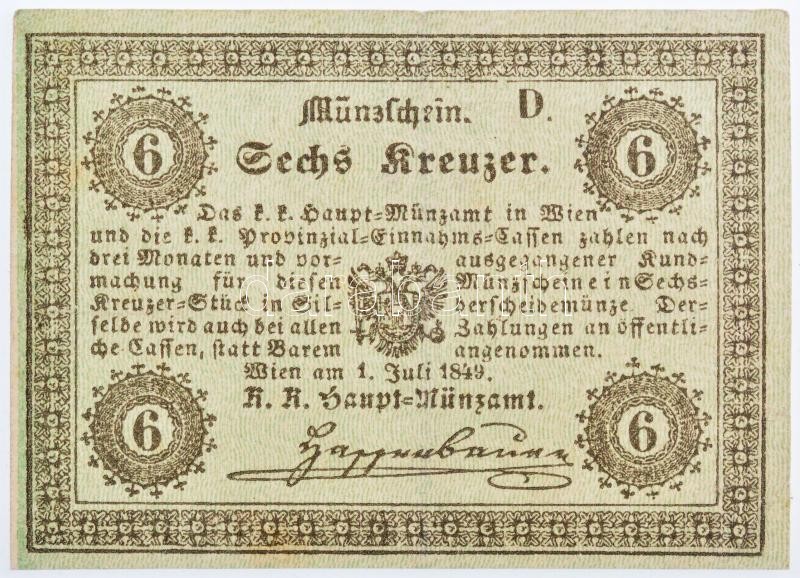 Münzschein. D.
Sechs Kreuzer.
6 6
Das k. k. Haupt=Münzamt in Wien
und die k. k. Provinzial=Einnahms=Cassen zahlen nach
drei Monaten und vor= ausgegangener Kund=
machung für diesen Münzschein ein Sechs=
Kreuzer=Stück in Sil= berscheidemünze. Der=
selbe wird auch bei allen Zahlungen an öffentli=
che Cassen, statt Barem angenommen.
Wien am 1. Juli 1849.
K. K. Haupt=Münzamt.
6 6
Hassenbauer